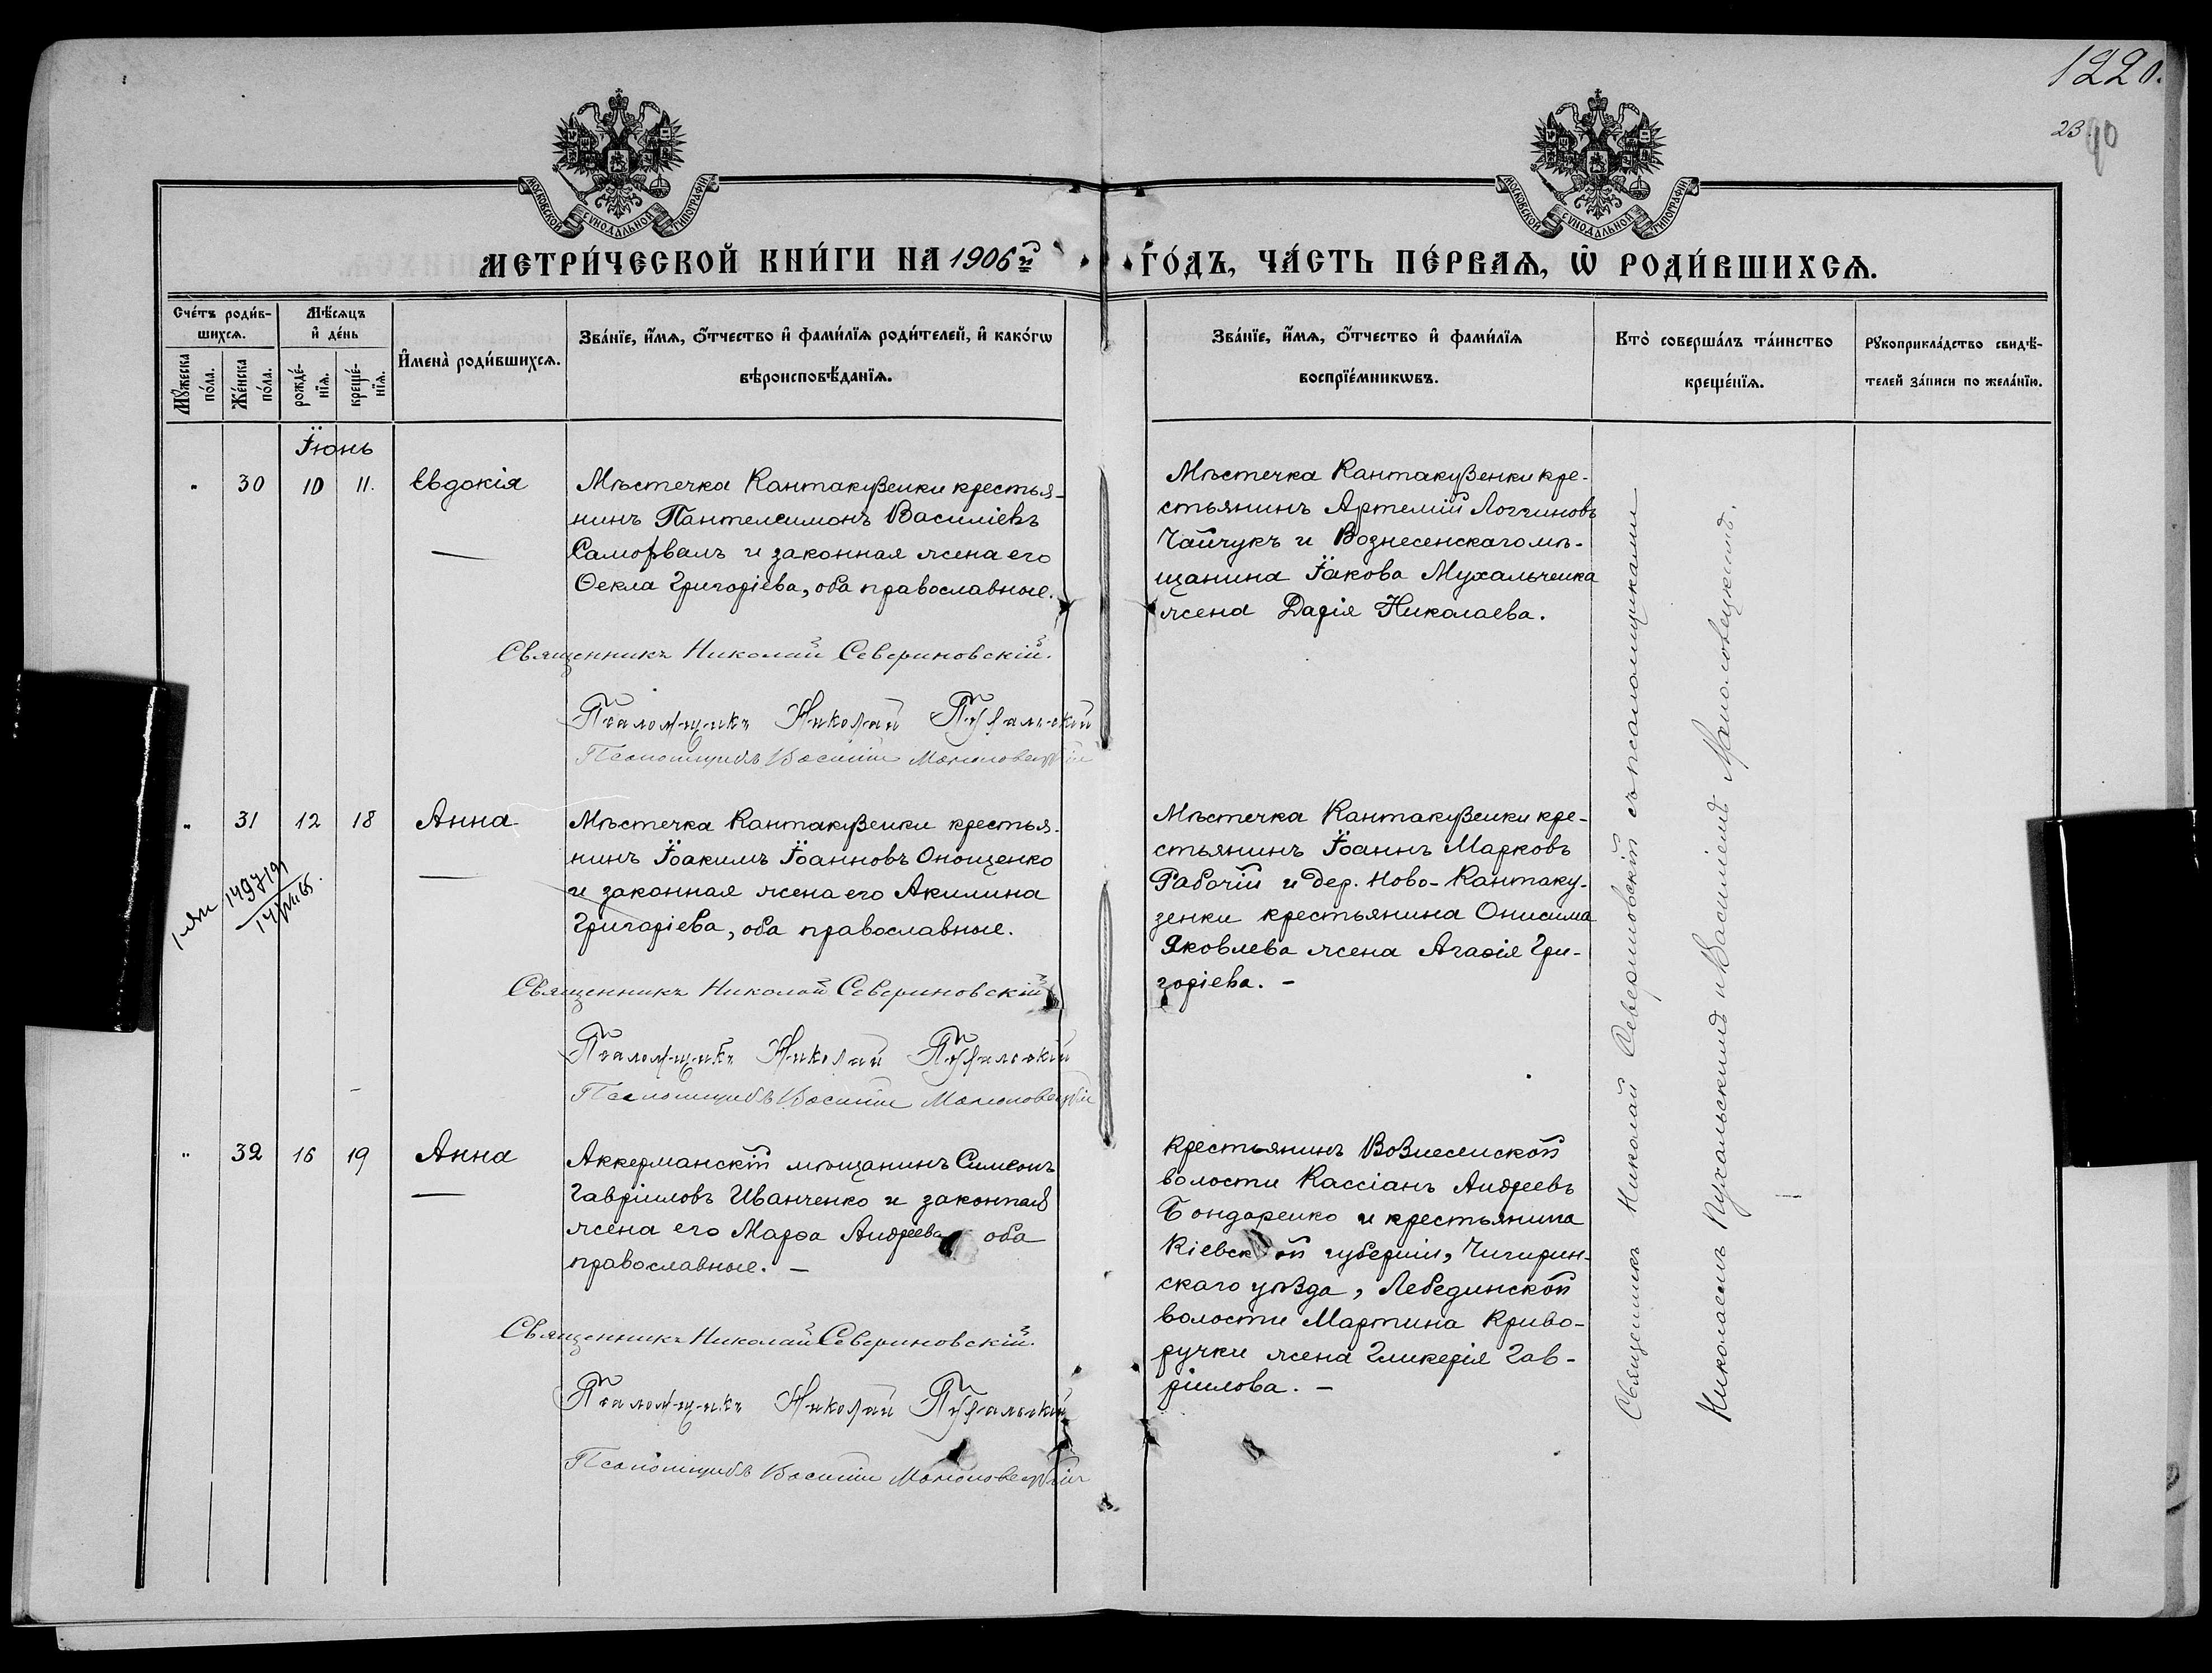 1220.
23
90
МОСКОВСКОЙ СѴНОДАЛЬНОЙ ТИПОГРАФІИ
МОСКОВСКОЙ СѴНОДАЛЬНОЙ ТИПОГРАФІИ
МЕТРИ́ЧЕСКОЙ КНИ́ГИ НА 1906й
ГО́ДЪ, ЧА́СТЬ ПЕ́РВАѦ, Ѡ҆ РОДИ́ВШИХСѦ.
Сче́тъ роди́в-
шихсѧ.
Мꙋ́жеска по́ла.
Же́нска по́ла.
Мѣ́сѧцъ
и҆ де́нь
рожде́-
нїѧ.
креще́-
нїѧ.
И҆мена̀ роди́вшихсѧ.
Зва́нїе, и҆́мѧ, ѻ҆́тчество и҆ фами́лїѧ роди́телей, и҆ како́гѡ
вѣроисповѣ́данїѧ.
Зва́нїе, и҆́мѧ, ѻ҆́тчество и҆ фами́лїѧ
воспрїе́мникѡвъ.
Кто̀ соверша́лъ та́инство
креще́нїѧ.
Рꙋкоприкла́дство свидѣ́-
телей за́писи по жела́нїю.
Іюнь
" 30 10 11. Евдокія
Мѣстечка Кантакузенки крестья-
нинъ Пантелеимонъ Василіевъ
Саморвалъ и законная жена его
Ѳекла Григоріева, оба православные.
Священникъ Николай Севериновскій.
Псаломщикъ Николай Пухальскій
Псаломщикъ Василій Маньковецкій
Мѣстечка Кантакузенки кре-
стьянинъ Артемій Логгиновъ
Чайчукъ и Вознесенскаго мѣ-
щанина Іакова Мухальченка
жена Дарія Николаева.
" 31 12 18 Анна
Мѣстечка Кантакузенки крестья-
нинъ Іоакимъ Іоанновъ Онощенко
и законная жена его Акилина
Григоріева, оба православные.
Священникъ Николай Севериновскій
Псаломщикъ Николай Пухальскій
Псаломщикъ Василій Маньковецкій
Мѣстечка Кантакузенки кре-
стьянинъ Іоаннъ Марковъ
Рабочій и дер. Ново-Кантаку-
зенки крестьянина Онисима
Яковлева жена Агаѳія Гри-
горіева. -
" 32 16 19 Анна
Аккерманскій мѣщанинъ Симеонъ
Гавріиловъ Иванченко и законная
жена его Марѳа Андреева оба
православные. -
Священникъ Николай Севериновскій.
Псаломщикъ Николай Пухальскій
Псаломщикъ Василій Маньковецкій
Крестьянинъ Вознесенской
волости Кассіанъ Андреевъ
Бондаренко и крестьянина
Кіевской губерніи, Чигирин-
скаго уѣзда, Лебединской
волости Мартина Криво-
ручки жена Гликерія Гав-
ріилова. -
Священникъ Николай Севериновскій съ псаломщиками
Николаемъ Пухальскимъ и Василіемъ Маньковецкимъ.